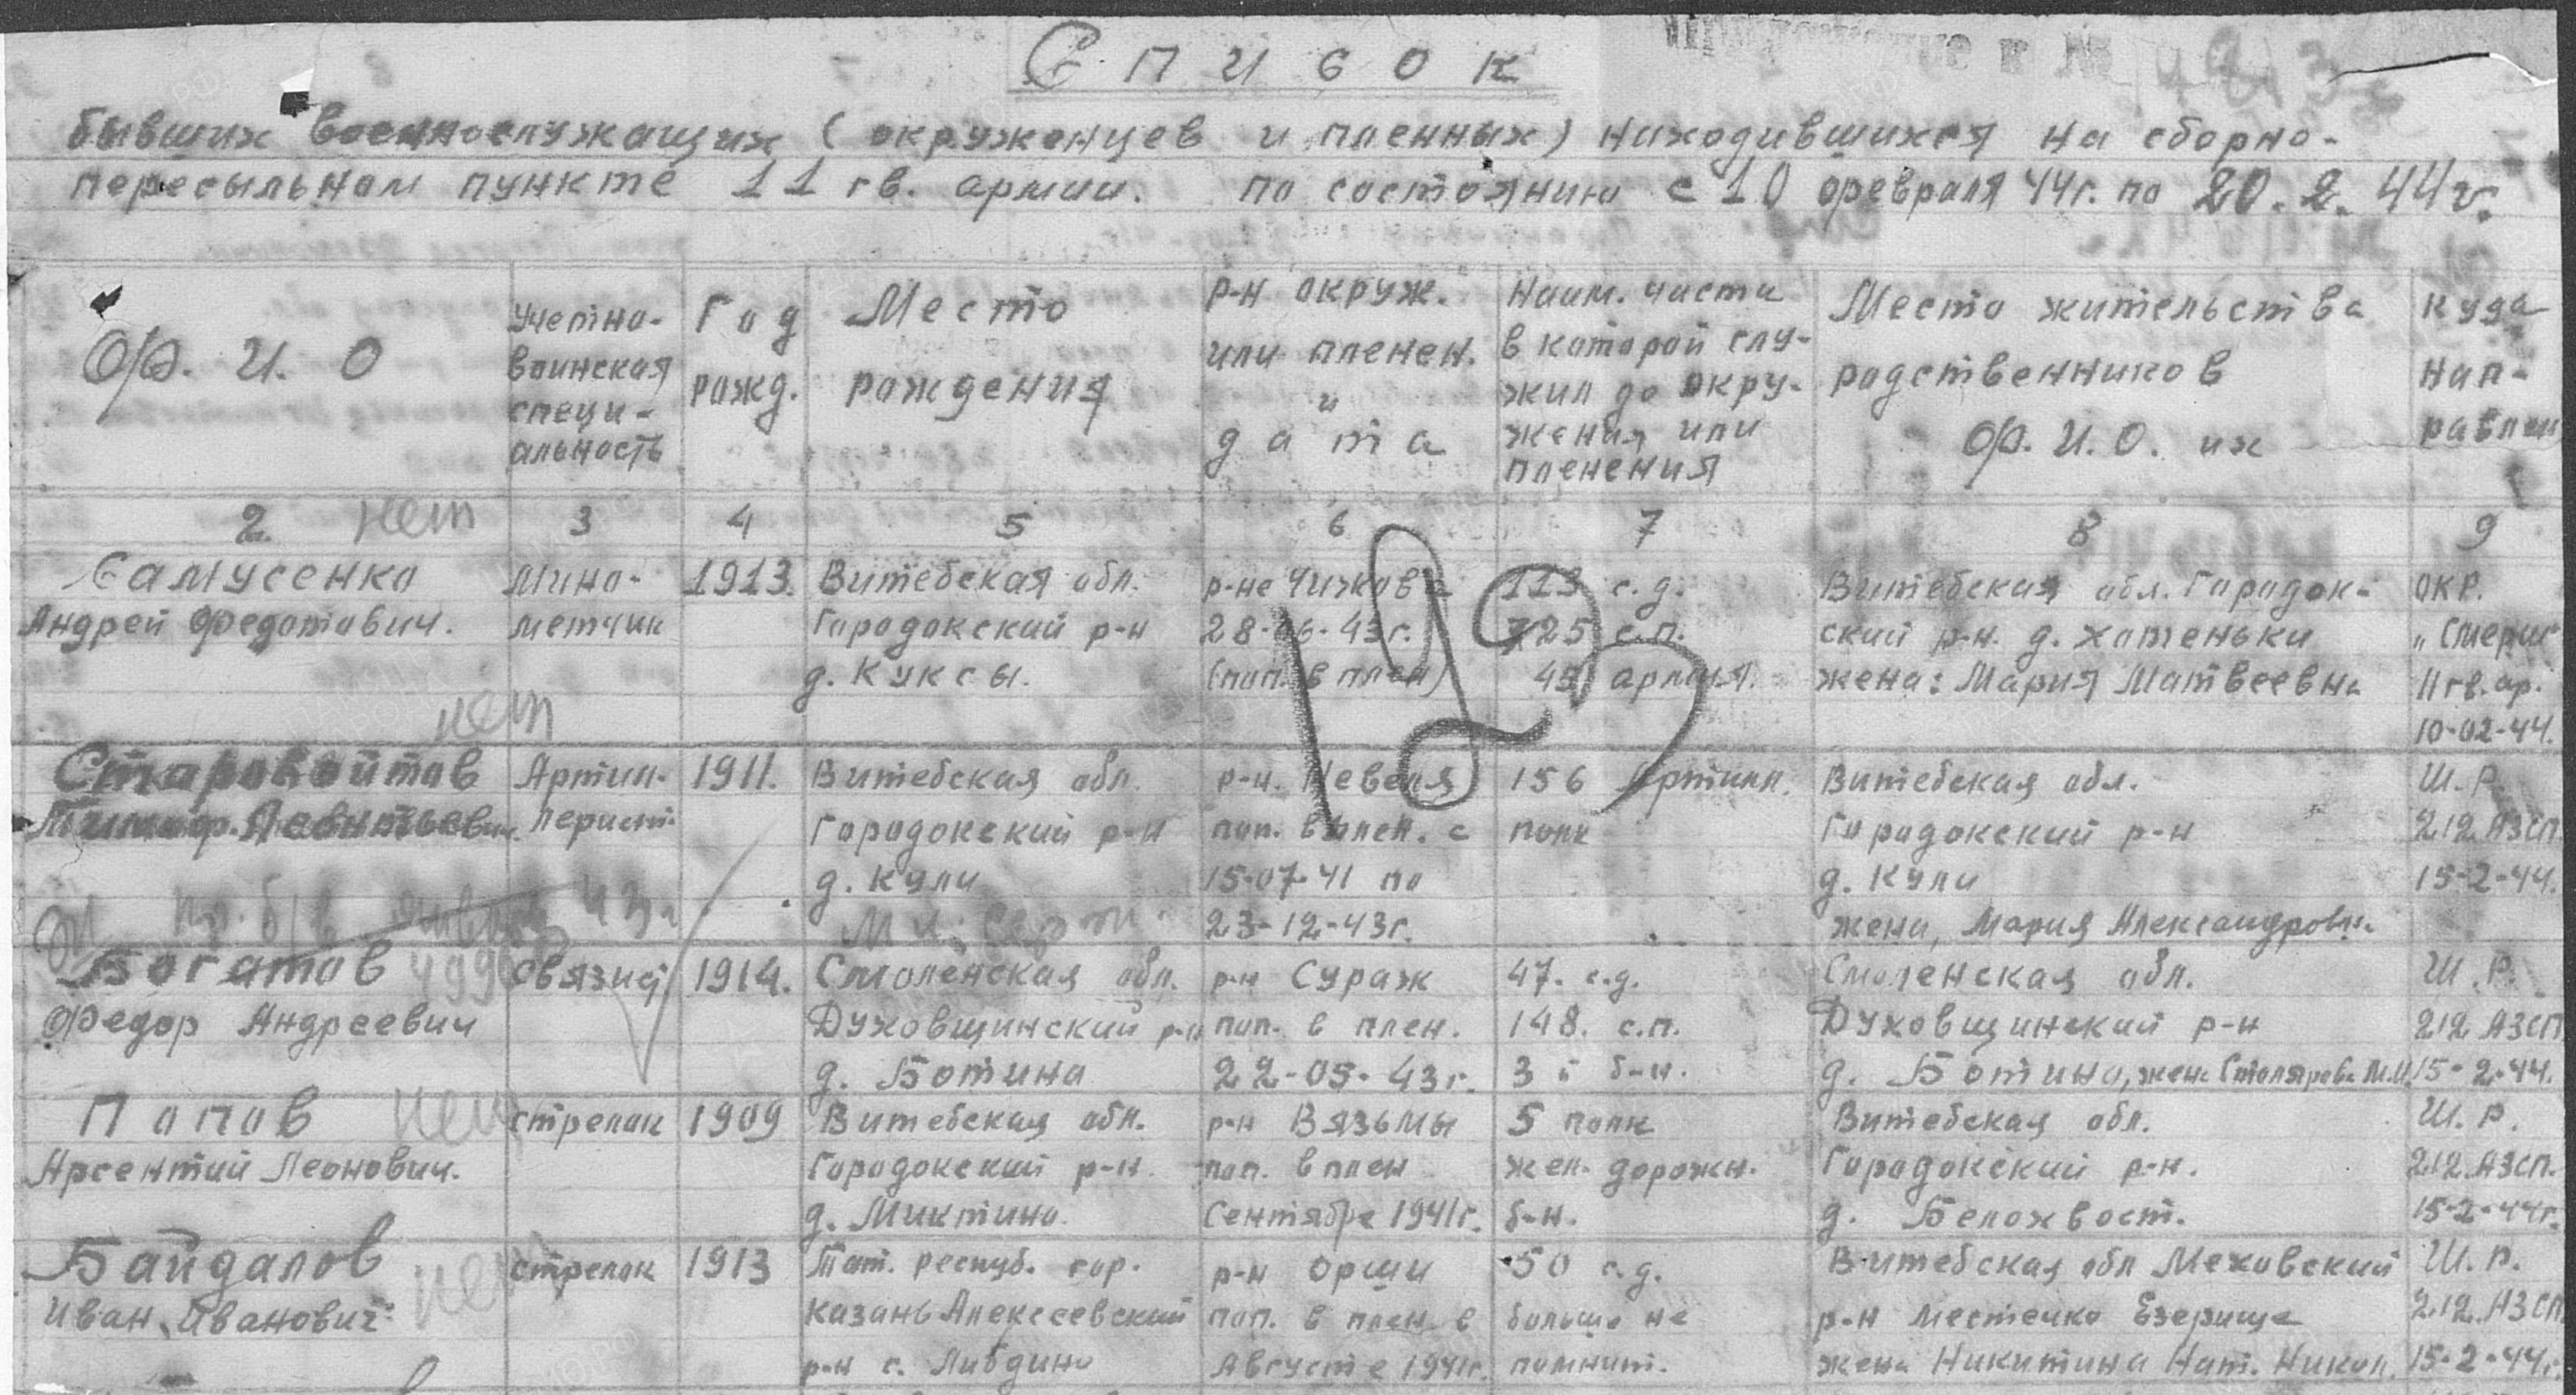 Список
бывших военнослужащих (окруженцев и пленных) находившихся на сборно-
пересыльном пункте 11 гв. армии. по состоянию с 10 февраля 44г. по 20.2.44г.
Ф. И. О
Учетно-
воинская
специ-
альность
Год
рожд.
Место
рождения
р-н окруж.
или пленен.
и
дата
Наим. части
в которой слу-
жил до окру-
жения или
пленения
Место жительства
родственников
Ф. И. О. их
Куда
нап-
равлен
2 нет 3 4 5 6 7 8 9
Самусенко
Андрей Федотович.
Мино-
метчик
1913.
Витебская обл.
Городокский р-н
д. Куксы.
р-не Чижова
28-06-43г.
(поп. в плен)
113 с.д.
725 с.п.
43 армия.
Витебская обл. Городок-
ский р-н. д. Хатеньки
жена: Мария Матвеевна
ОКР.
"Смерш"
11 гв. ар.
10-02-44.
нет
Старовойтов
Тимоф. Леонтьевич.
Артил-
лерист.
1911.
Витебская обл.
Городокский р-н
д. Кули
р-н. Невеля
поп. в плен. с
15-07-41 по
23-12-43г.
156 Артилл.
полк
Витебская обл.
Городокский р-н
д. Кули
жена, Мария Александровн.
Ш.Р.
212 АЗСП
15-2-44.
пр. б/в январь 43г
Богатов
Федор Андреевич
связист
1914.
Смоленская обл.
Духовщинский р-н
д. Ботина
р-н Сураж
поп. в плен.
22-05-43г.
47. с.д.
148. с.п.
3й б-н.
Смоленская обл.
Духовщинский р-н
д. Ботино, жена Столярова М.И.
Ш.Р.
212 АЗСП
15-2-44.
Попов нет
Арсентий Леонович.
стрелок
1909
Витебская обл.
Городокский р-н.
д. Миктино.
р-н Вязьмы
поп. в плен
Сентябре 1941г.
5 полк
жел. дорожн.
б-н.
Витебская обл.
Городокский р-н.
д. Белохвост.
Ш.Р.
212. АЗСП.
15-2-44г.
Байдалов нет
Иван Иванович
стрелок
1913
Тат. респуб. гор.
Казань Алексеевский
р-н с. Либдино
р-н Орши
поп. в плен в
Августе 1941г.
50 с.д.
больше не
помнит.
Витебская обл Меховский
р-н местечко Езерище
жена Никитина Нат. Никол.
Ш.Р.
212. АЗСП
15-2-44г.